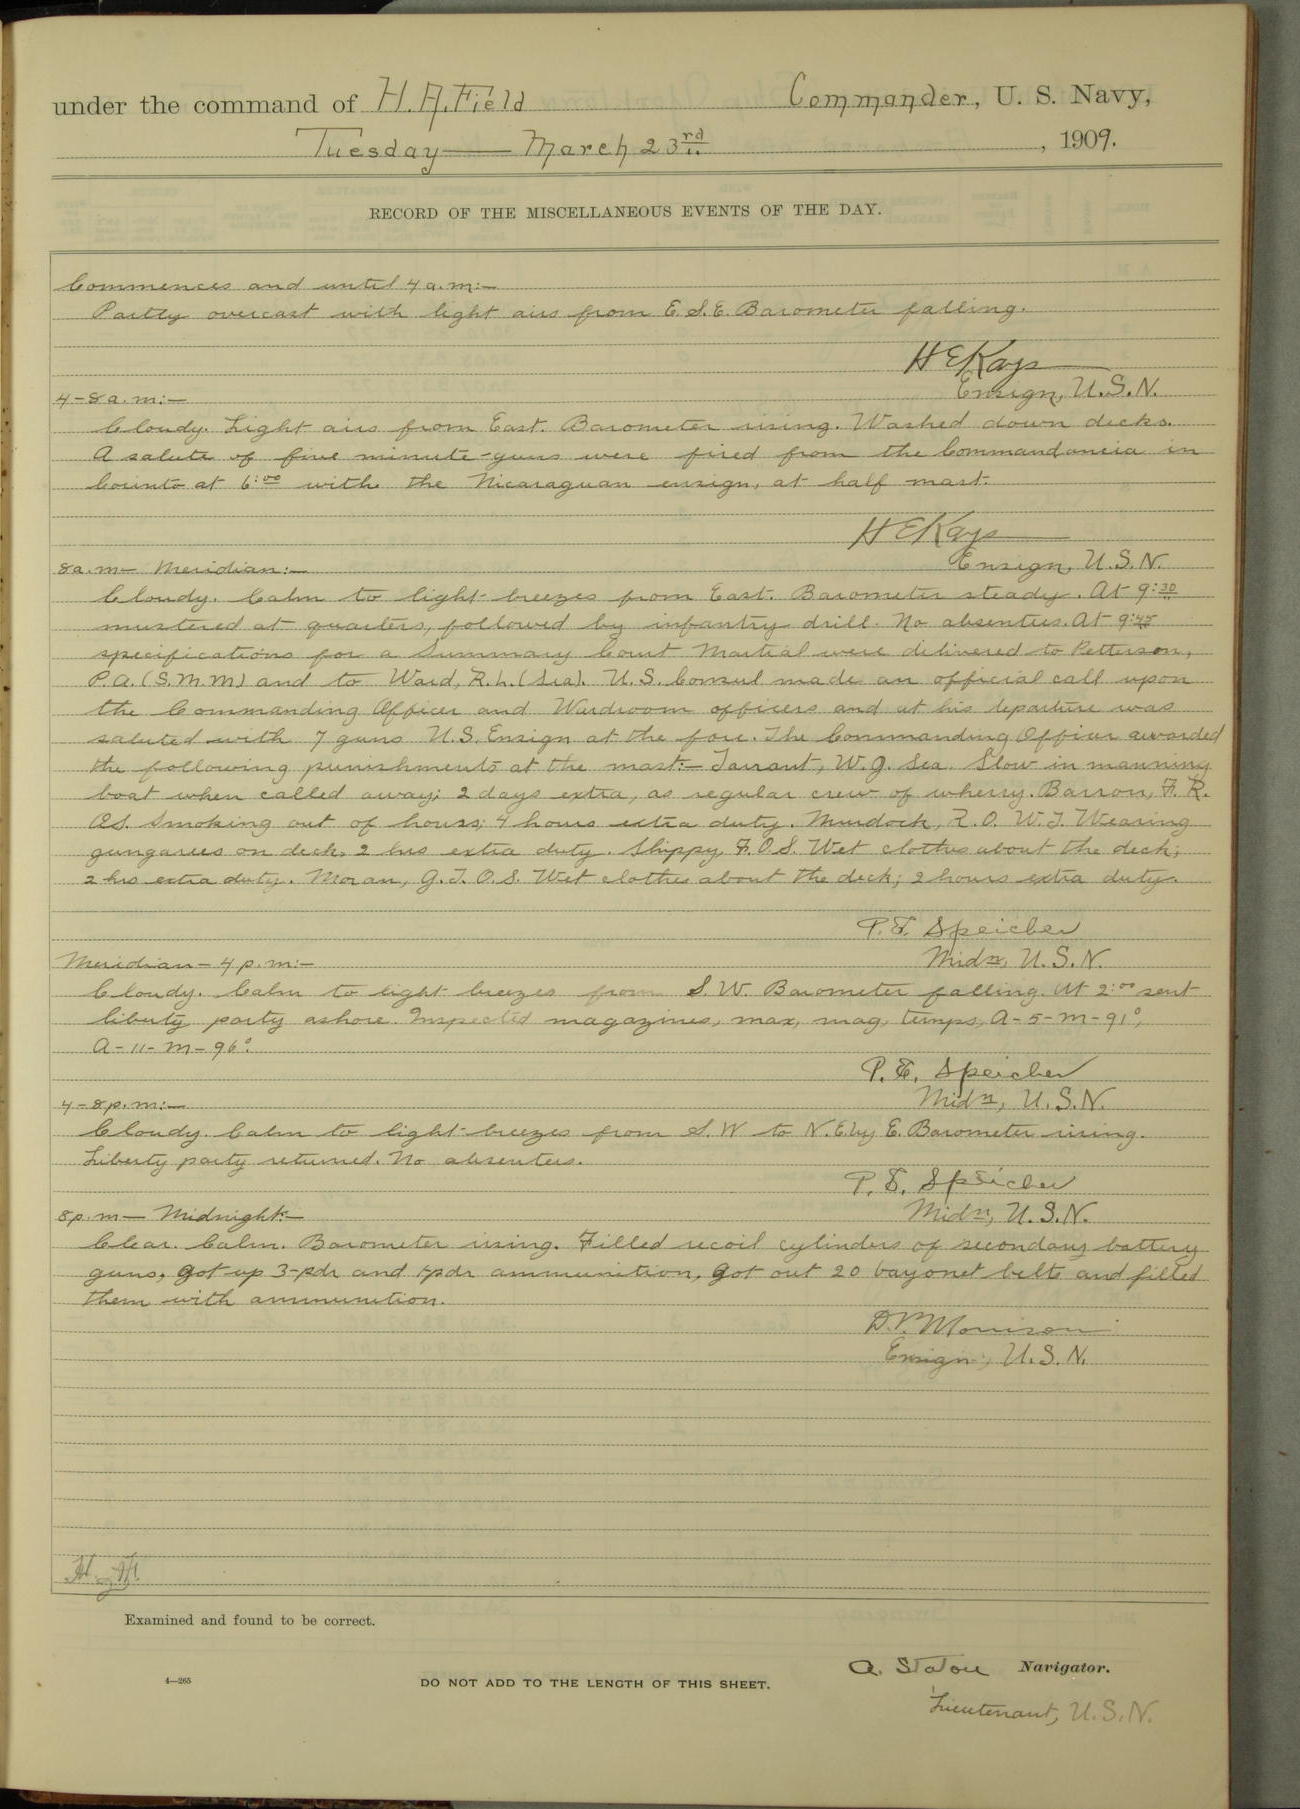 under the command of H. A. Field Commander, U. S. Navy,
Tuesday — March 23rd, 1909.
RECORD OF THE MISCELLANEOUS EVENTS OF THE DAY.
Commences and until 4 a.m:—
Partly overcast with light airs from E.S.E. Barometer falling.
H E Kays
Ensign, U.S.N.
4-8 a.m:—
Cloudy. Light airs from East. Barometer rising. Washed down decks.
A salute of five minute-guns were fired from the Commandancia in
Corinto at 6:00 with the Nicaraguan ensign, at half mast.
H E Kays
Ensign, U.S.N.
8 a.m— Meridian:—
Cloudy. Calm to light breezes from East. Barometer steady. At 9:30
mustered at quarters, followed by infantry drill. No absentees. At 9:45
specifications for a Summary Court Martial were delivered to Petterson,
P.A. (S.M.M) and to Ward, R.L. (Sea). U.S. Consul made an official call upon
the Commanding Officer and Wardroom officers and at his departure was
saluted with 7 guns U.S. Ensign at the fore. The Commanding Officer awarded
the following punishments at the mast:— Tarrant, W.J. Sea. Slow in manning
boat when called away; 2 days extra, as regular crew of wherry. Barron, F. R.
OS. Smoking out of hours; 4 hours extra duty. Murdock, R.O. W.T. Wearing
gungarees on deck, 2 hrs extra duty. Shippy, F. O.S. Wet clothes about the deck;
2 hrs extra duty. Moran, G.T. O.S. Wet clothes about the deck; 2 hours extra duty.
P.E. Speicher
Midn, U.S.N.
Meridian— 4 p.m:—
Cloudy. Calm to light breezes from S.W. Barometer falling. At 2:00 sent
liberty party ashore. Inspected magazines, max, mag, temps, A-5-M-91°,
A-11-M-96°.
P.E. Speicher
Midn, U.S.N.
4-8 p.m:—
Cloudy. Calm to light breezes from S.W to N.E. by E. Barometer rising.
Liberty party returned. No absentees.
P.E. Speicher
Midn, U.S.N.
8 p.m— Midnight:—
Clear. Calm. Barometer rising. Filled recoil cylinders of secondary battery
guns, got up 3-pdr and 1-pdr ammunition, got out 20 bayonet belts and filled
them with ammunition.
Morrison
Ensign, U.S.N.
Examined and found to be correct.
A. Staton Navigator.
4—265
DO NOT ADD TO THE LENGTH OF THIS SHEET.
Lieutenant, U.S.N.